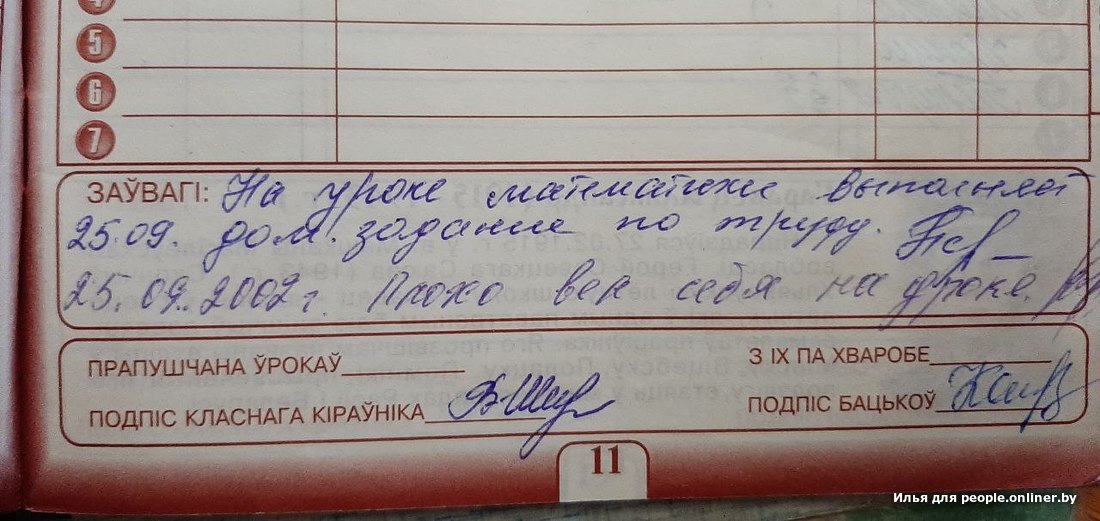 5
6
7
ЗАЎВАГІ: На уроке математики выполнял
25.09. дом. задание по труду.
25.09.2002г. Плохо вел себя на уроке.
ПРАПУШЧАНА ЎРОКАЎ
З ІХ ПА ХВАРОБЕ
ПОДПІС КЛАСНАГА КІРАЎНІКА
ПОДПІС БАЦЬКОЎ
11
Илья для people.onliner.by